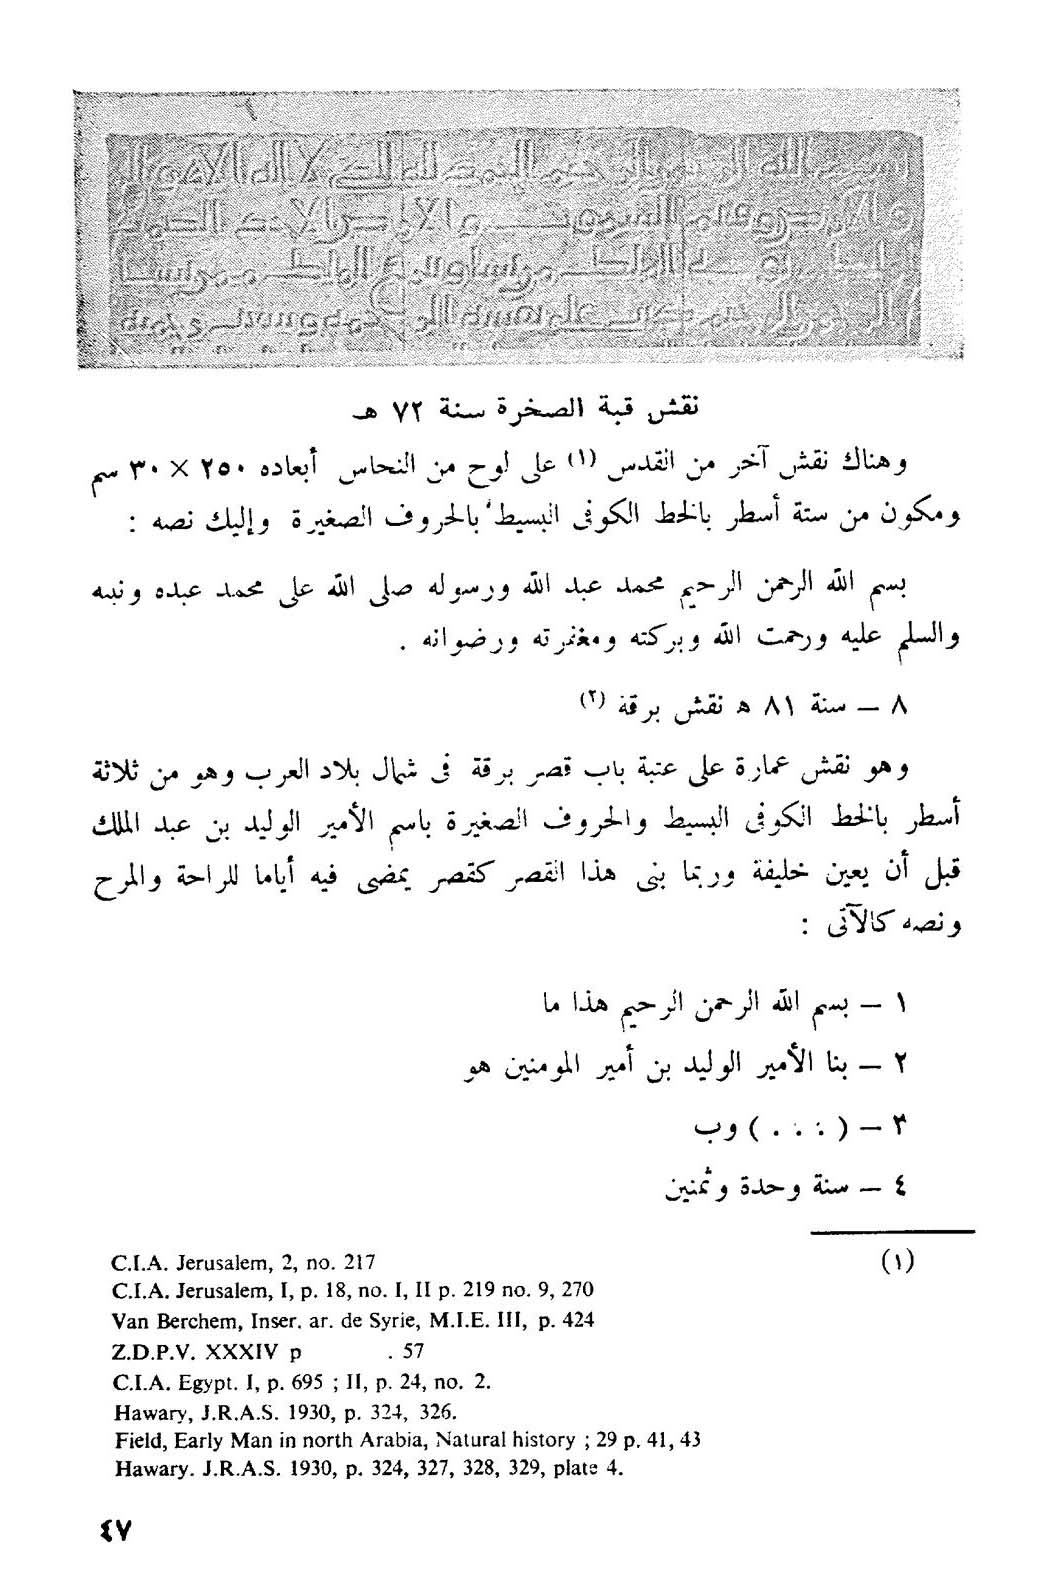 نقش قبة الصخرة سنة ٧٢ هـ
وهناك نقش آخر من القدس (١) على لوح من النحاس أبعاده ٢٥٠ × ٣٠ سم
ومكون من ستة أسطر بالخط الكوفى البسيط بالحروف الصغيرة وإليك نصه :
بسم الله الرحمن الرحيم محمد عبد الله ورسوله صلى الله على محمد عبده ونبيه
والسلم عليه ورحمت الله وبركته ومغفرته ورضوانه .
٨ — سنة ٨١ ه نقش برقة (٢)
وهو نقش عمارة على عتبة باب قصر برقة فى شمال بلاد العرب وهو من ثلاثة
أسطر بالخط الكوفى البسيط والحروف الصغيرة باسم الأمير الوليد بن عبد الملك
قبل أن يعين خليفة وربما بنى هذا القصر كقصر يمضى فيه أياما للراحة والمرح
ونصه كالآتى :
١ — بسم الله الرحمن الرحيم هذا ما
٢ — بنا الأمير الوليد بن أمير المومنين هو
٣ — ( . . . ) وب
٤ — سنة وحدة وثمنين
(١)
C.I.A. Jerusalem, 2, no. 217
C.I.A. Jerusalem, I, p. 18, no. I, II p. 219 no. 9, 270
Van Berchem, Inser. ar. de Syrie, M.I.E. III, p. 424
Z.D.P.V. XXXIV p . 57
C.I.A. Egypt. I, p. 695 ; II, p. 24, no. 2.
Hawary, J.R.A.S. 1930, p. 324, 326.
Field, Early Man in north Arabia, Natural history ; 29 p. 41, 43
Hawary. J.R.A.S. 1930, p. 324, 327, 328, 329, plate 4.
٤٧